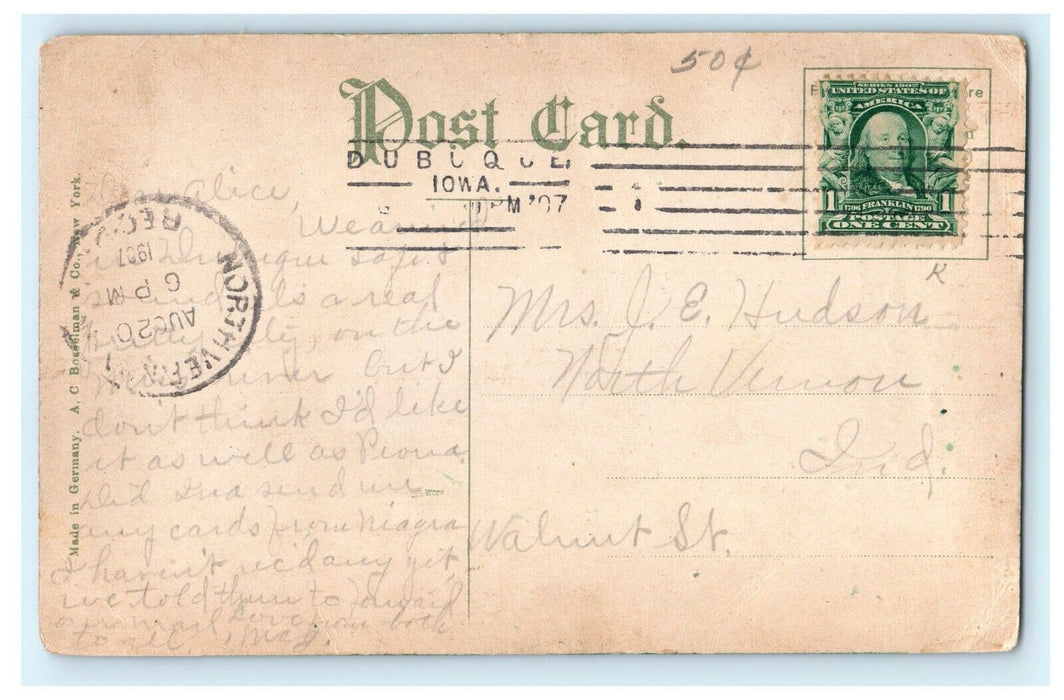 50¢
Post Card.
SERIES 1902
UNITED STATES OF
AMERICA
1 1706 FRANKLIN 1790 1
POSTAGE
ONE CENT
re
DUBUQUE,
IOWA.
PM '07
K
REC'D
1907
6 PM
AUG 20
NORTH VERN
Made in Germany. A. C. Bosselman & Co., New York.
Dear Alice,
We
in Dubuque safe &
sound. Is a real
pretty city, on the
river but I
don't think I'd like
it as well as Peoria.
Did Ina send me
any cards from Niagra
I haven't rec'd any yet,
we told them to forward
our mail Love from both
to all, Mag.
Mrs. J. E. Hudson
North Vernon
Ind.
Walnut St.